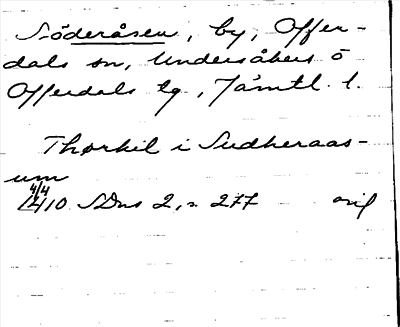 Söderåsen, by, Offer-
dals sn, Undersåkers o
Offerdals tg, Jämtl. l.
Thorkil i Sudheraas-
um
4/4
1410 SDns 2, s 277 orig